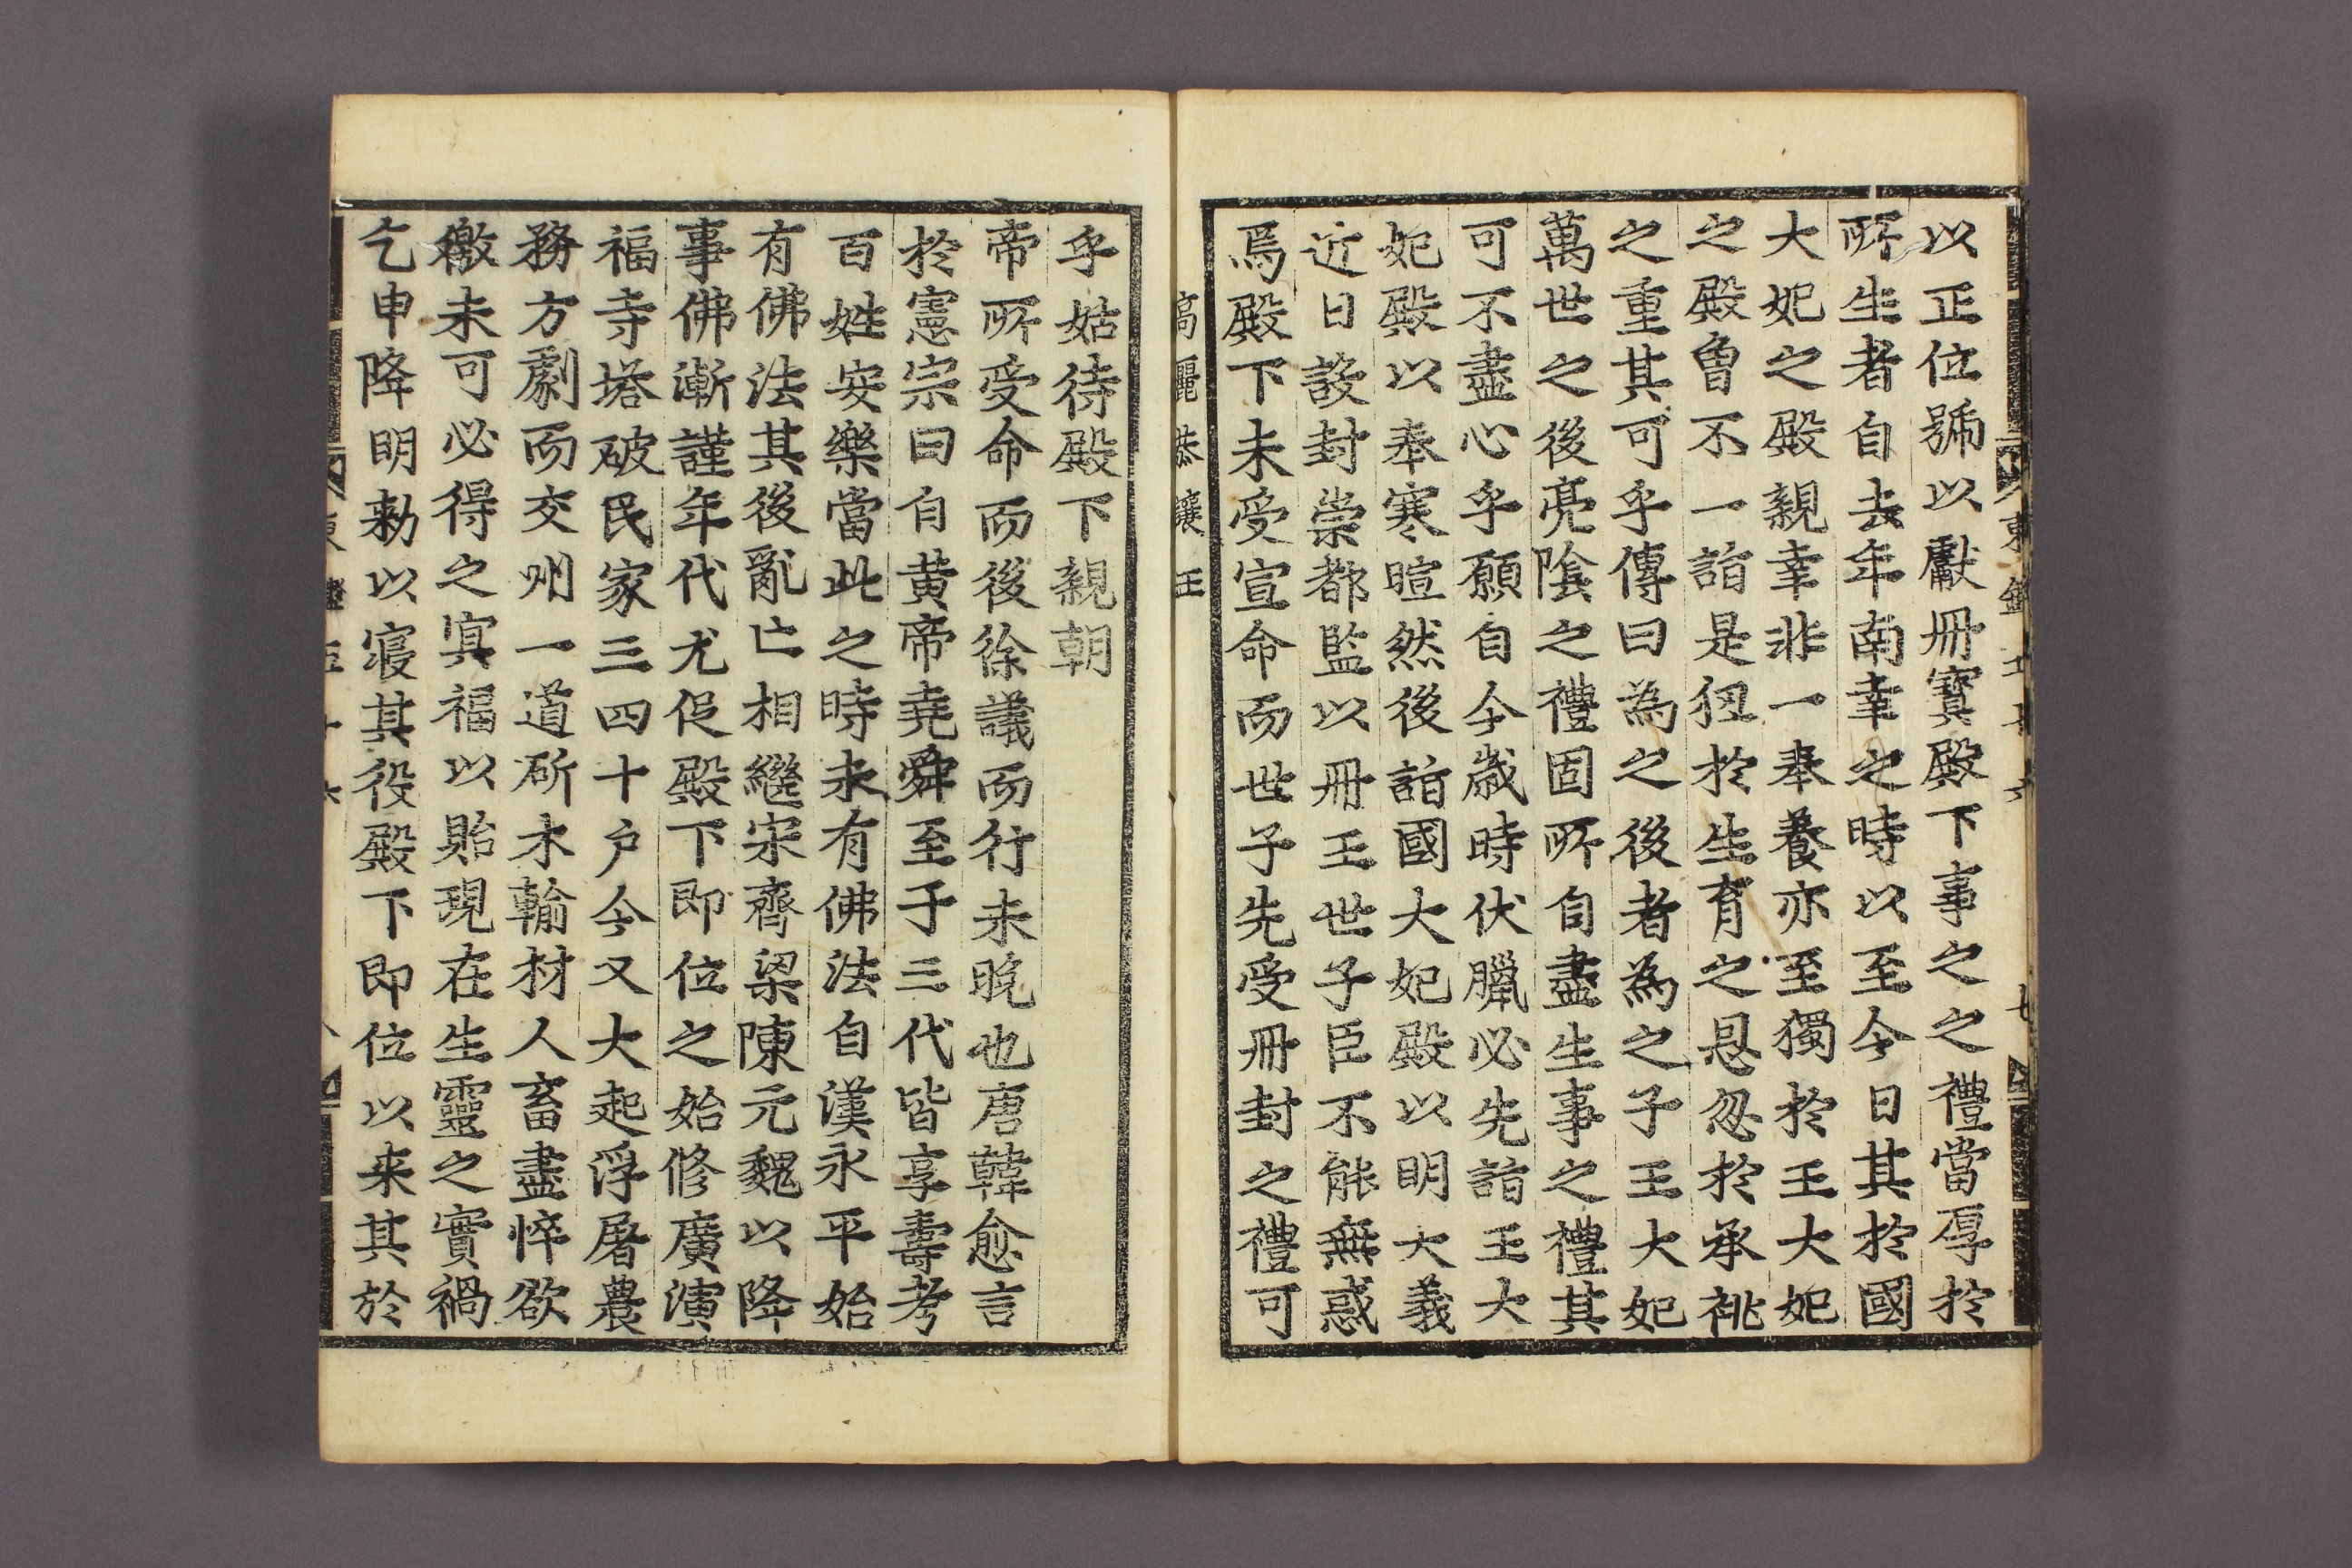 以正位號以獻冊寶殿下事之之禮當厚於
所生者自去年南幸之時以至今日其於國
大妃之殿親幸非一奉養亦至獨於王大妃
之殿曾不一詣是狃於生育之恩忽於承祧
之重其可乎傳曰為之後者為之子王大妃
萬世之後亮陰之禮固所自盡生事之禮其
可不盡心乎願自今歲時伏臘必先詣王大
妃殿以奉寒暄然後詣國大妃殿以明大義
近日設封崇都監以冊王世子臣不能無惑
焉殿下未受宣命而世子先受冊封之禮可
高麗恭讓王
乎姑待殿下親朝
帝所受命而後徐議而行未晚也唐韓愈言
於憲宗曰自黃帝堯舜至于三代皆享壽考
百姓安樂當此之時未有佛法自漢永平始
有佛法其後亂亡相繼宋齊梁陳元魏以降
事佛漸謹年代尤促殿下即位之始修廣演
福寺塔破民家三四十戶今又大起浮屠農
務方劇而交州一道斫木輸材人畜盡悴欲
徼未可必得之冥福以貽現在生靈之實禍
乞申降明勑以寢其役殿下即位以来其於